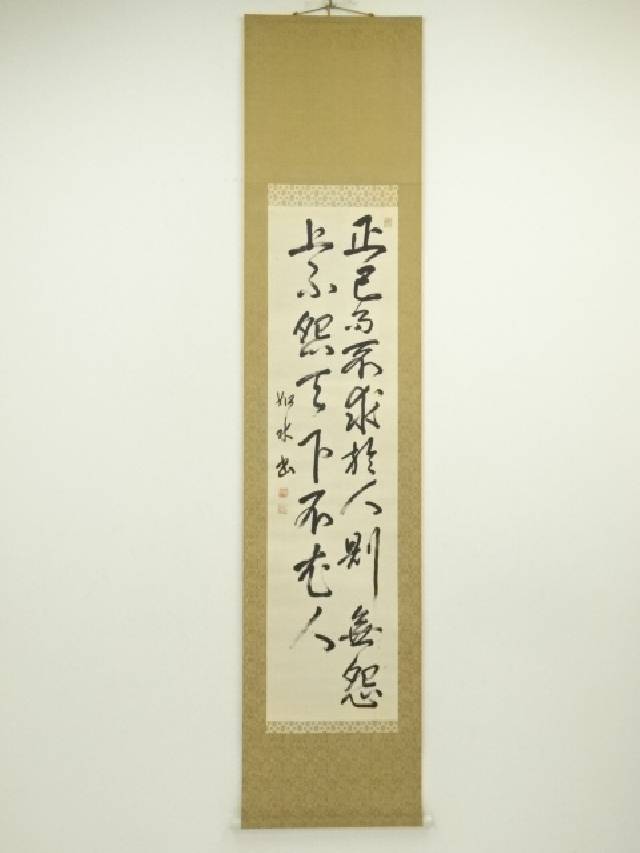 正己而不求於人則無怨
上不怨天下不尤人
如水書